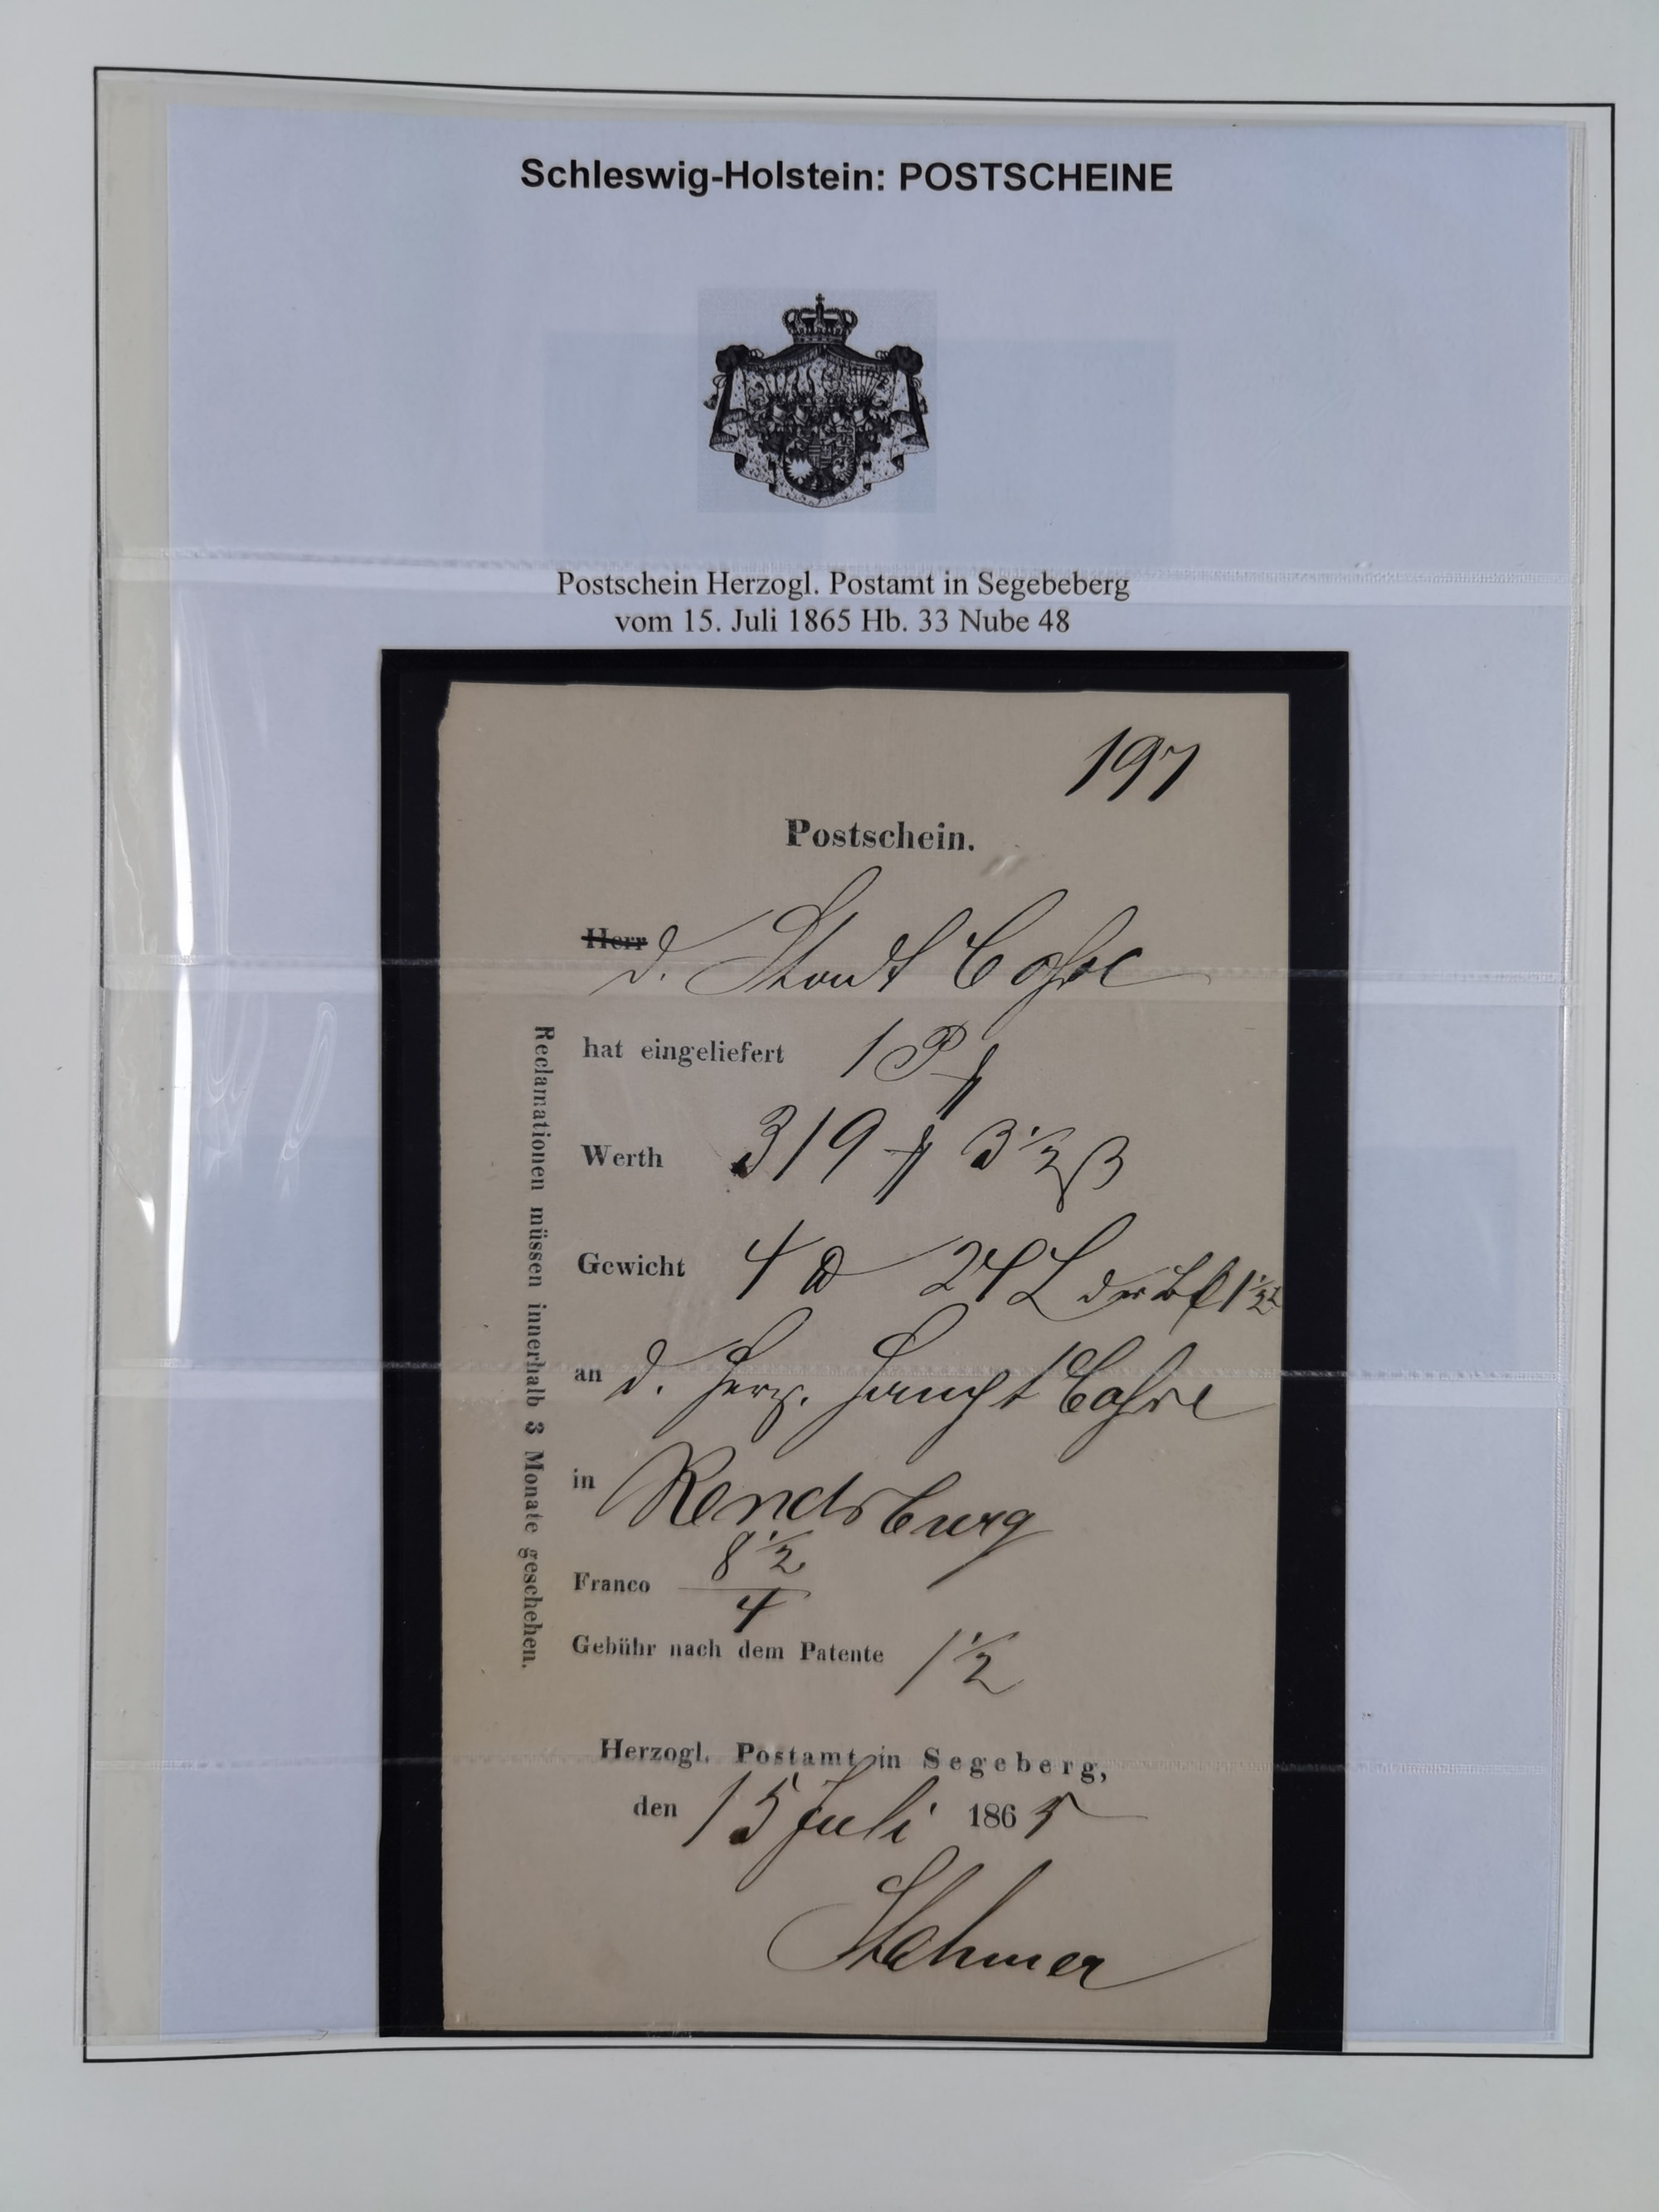 Schleswig-Holstein: POSTSCHEINE
Postschein Herzogl. Postamt in Segebeberg
vom 15. Juli 1865 Hb. 33 Nube 48
197
Postschein.
Herr d. Stadt Casse
hat eingeliefert 1 P
Werth 319 3 1/2 β
Gewicht 4 24 L
an d. Herz. Haupt Casse
in Rendsburg
Franco 8 1/2
4
Gebühr nach dem Patente 1 1/2
Herzogl. Postamt in Segeberg,
den 15 Juli 1865
Reclamationen müssen innerhalb 3 Monate geschehen.